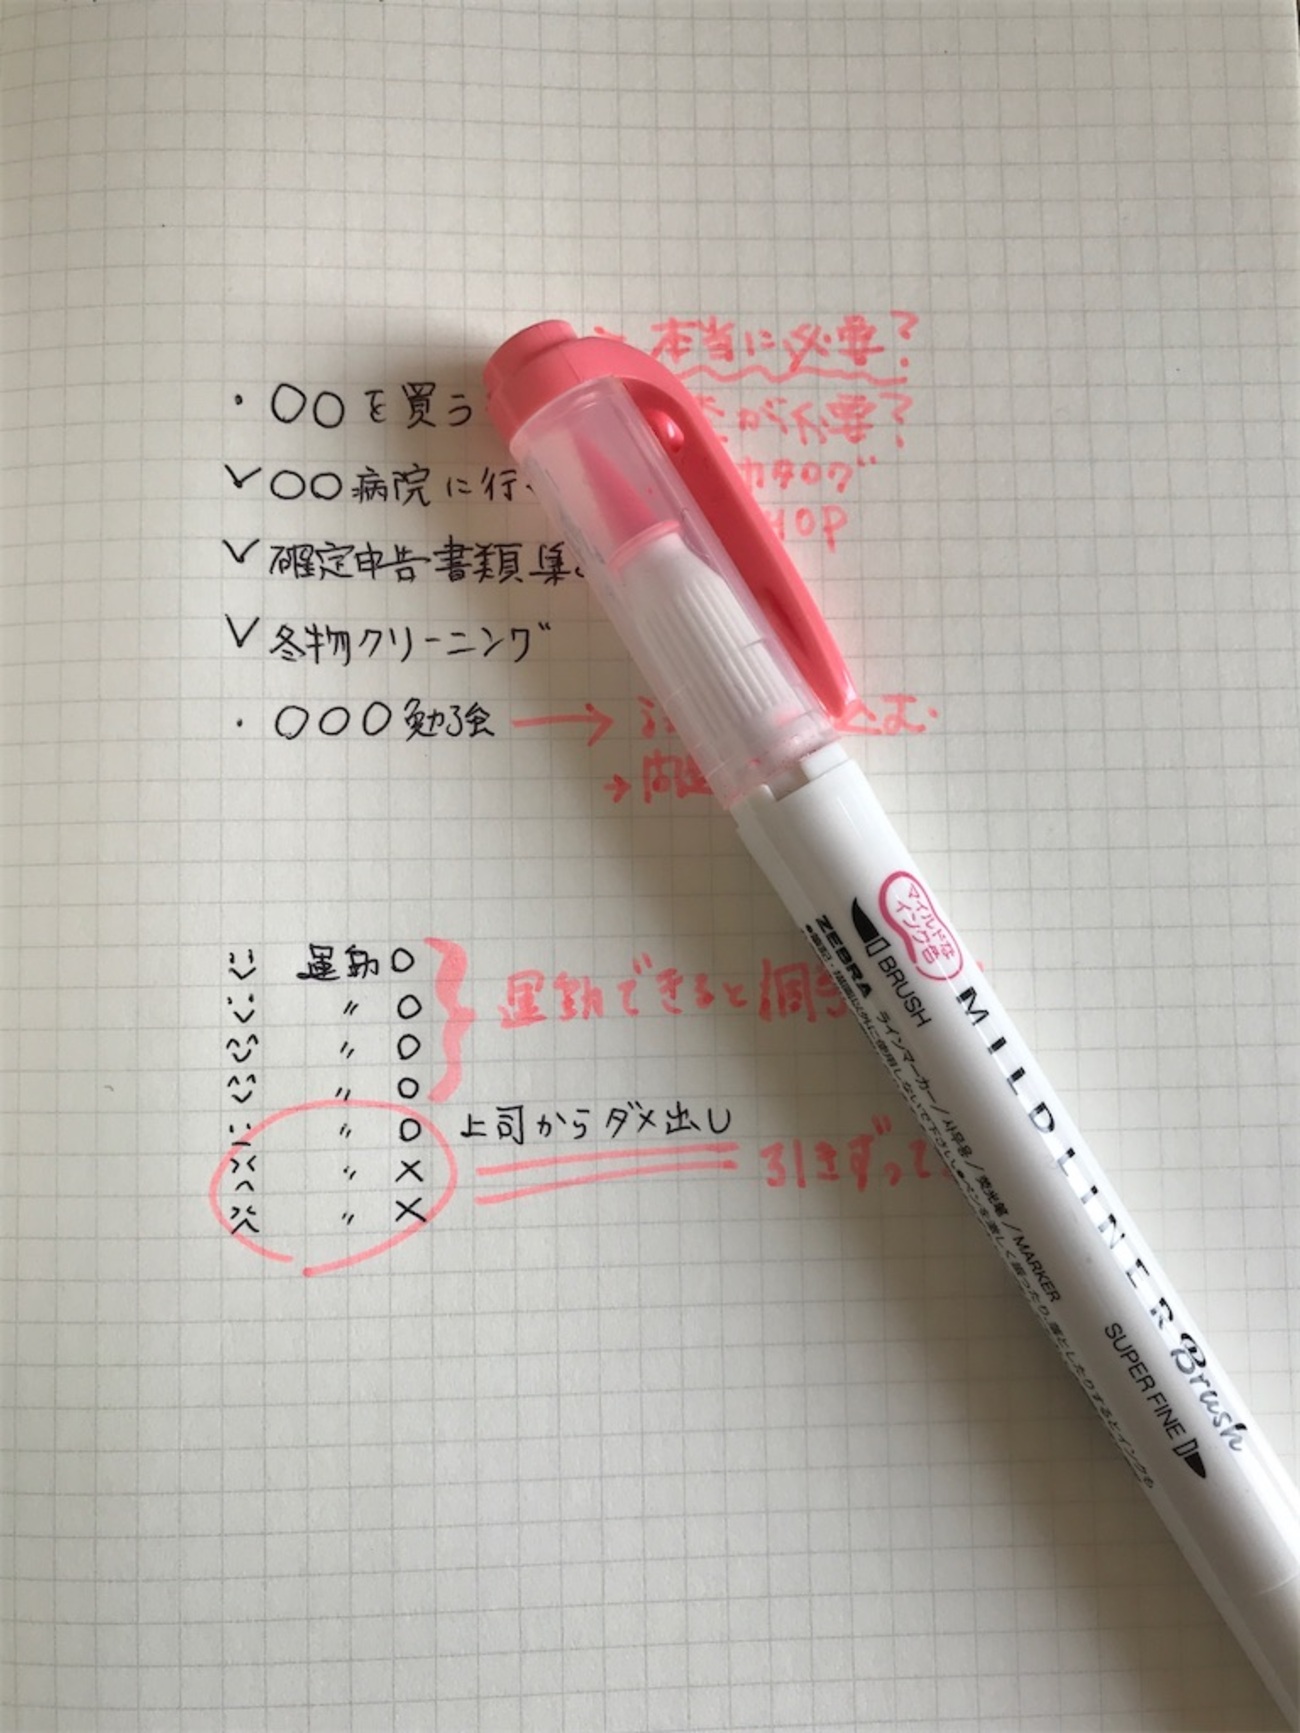 本当に必要?
・〇〇を買う
が必要?
✓〇〇病院に行
カタログ
HOP
✓確定申告書類集
✓冬物クリーニング
・〇〇〇勉強 →
込む
→
運動〇
〃 〇
〃 〇
〃 〇
〃 〇
〃 ×
〃 ×
運動できると調子
上司からダメ出し
引きずって
マイルドな
インク色
ZEBRA
BRUSH
MILDLINER Brush
ラインマーカー/사무용/荧光笔/MARKER
SUPER FINE